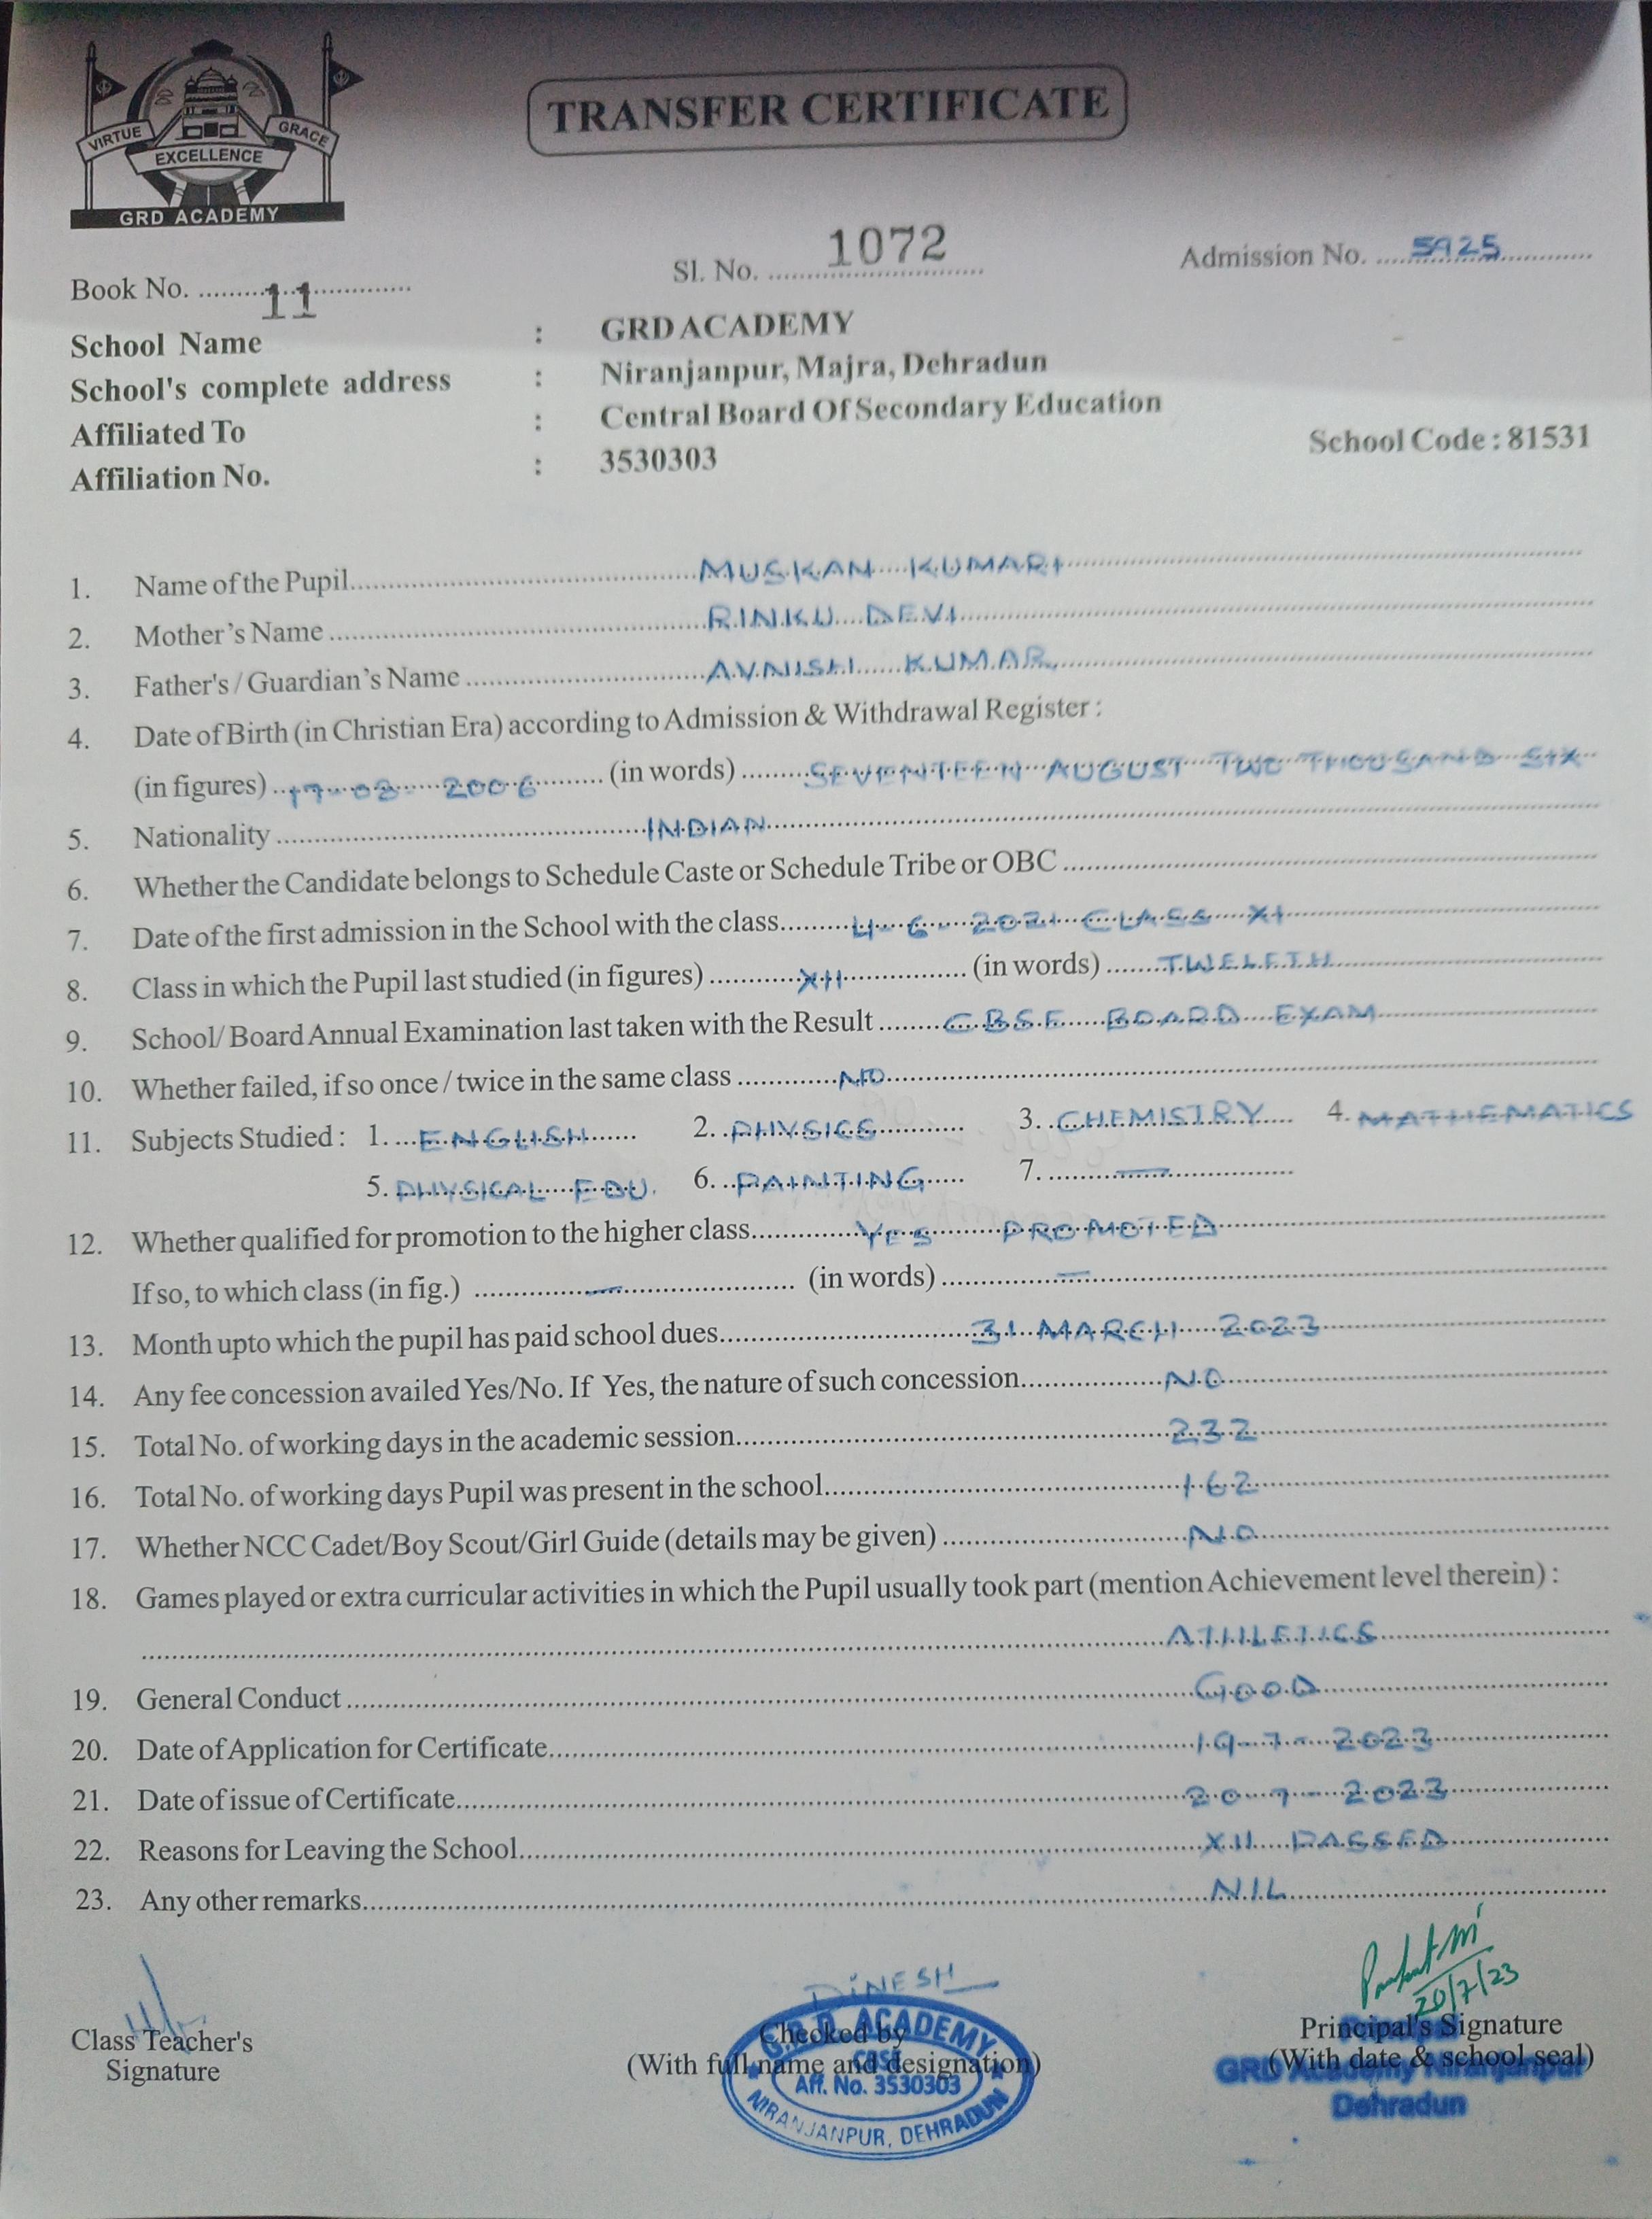 VIRTUE GRACE
EXCELLENCE
GRD ACADEMY
TRANSFER CERTIFICATE
Book No. 11 Sl. No. 1072 Admission No. 5925
School Name : GRD ACADEMY
School's complete address : Niranjanpur, Majra, Dehradun
Affiliated To : Central Board Of Secondary Education
Affiliation No. : 3530303 School Code : 81531
1. Name of the Pupil MUSKAN KUMARI
2. Mother's Name RINKU DEVI
3. Father's / Guardian's Name AVNISH KUMAR
4. Date of Birth (in Christian Era) according to Admission & Withdrawal Register :
(in figures) 17-08-2006 (in words) SEVENTEEN AUGUST TWO THOUSAND SIX
5. Nationality INDIAN
6. Whether the Candidate belongs to Schedule Caste or Schedule Tribe or OBC
7. Date of the first admission in the School with the class 4-6-2021 CLASS XI
8. Class in which the Pupil last studied (in figures) XII (in words) TWELFTH
9. School/ Board Annual Examination last taken with the Result C.B.S.E. BOARD EXAM
10. Whether failed, if so once / twice in the same class NO
11. Subjects Studied : 1. ENGLISH 2. PHYSICS 3. CHEMISTRY 4. MATHEMATICS
5. PHYSICAL EDU. 6. PAINTING 7. —
12. Whether qualified for promotion to the higher class YES PROMOTED
If so, to which class (in fig.) — (in words) —
13. Month upto which the pupil has paid school dues 31 MARCH 2023
14. Any fee concession availed Yes/No. If Yes, the nature of such concession NO
15. Total No. of working days in the academic session 232
16. Total No. of working days Pupil was present in the school 162
17. Whether NCC Cadet/Boy Scout/Girl Guide (details may be given) NO
18. Games played or extra curricular activities in which the Pupil usually took part (mention Achievement level therein) :
ATHLETICS
19. General Conduct GOOD
20. Date of Application for Certificate 19-7-2023
21. Date of issue of Certificate 20-7-2023
22. Reasons for Leaving the School XII PASSED
23. Any other remarks NIL
DINESH
20/7/23
Class Teacher's Checked by Principal's Signature
Signature (With full name and designation) (With date & school seal)
G.R.D. ACADEMY
CBSE
Aff. No. 3530303
NIRANJANPUR, DEHRADUN
GRD Academy Niranjanpur
Dehradun